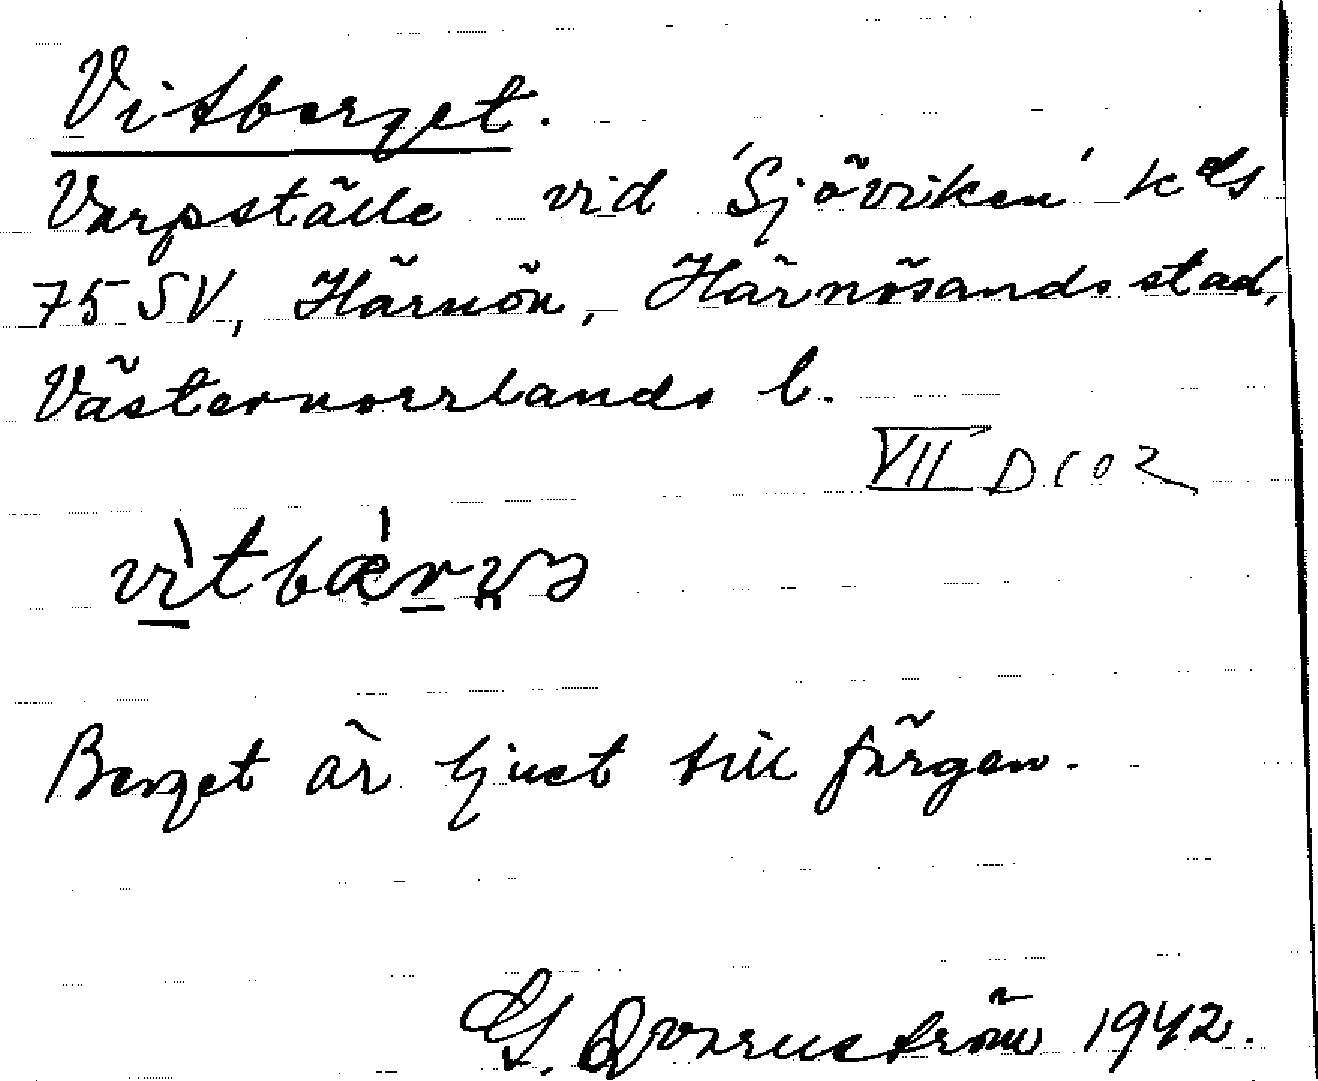 Vitberget.
Varpställe vid 'Sjöviken' kds
75 SV, Härnön, Härnösands stad,
Västernorrlands l.
VII D C 02
Berget är ljust till färgen.
G. Qvarnström 1942.